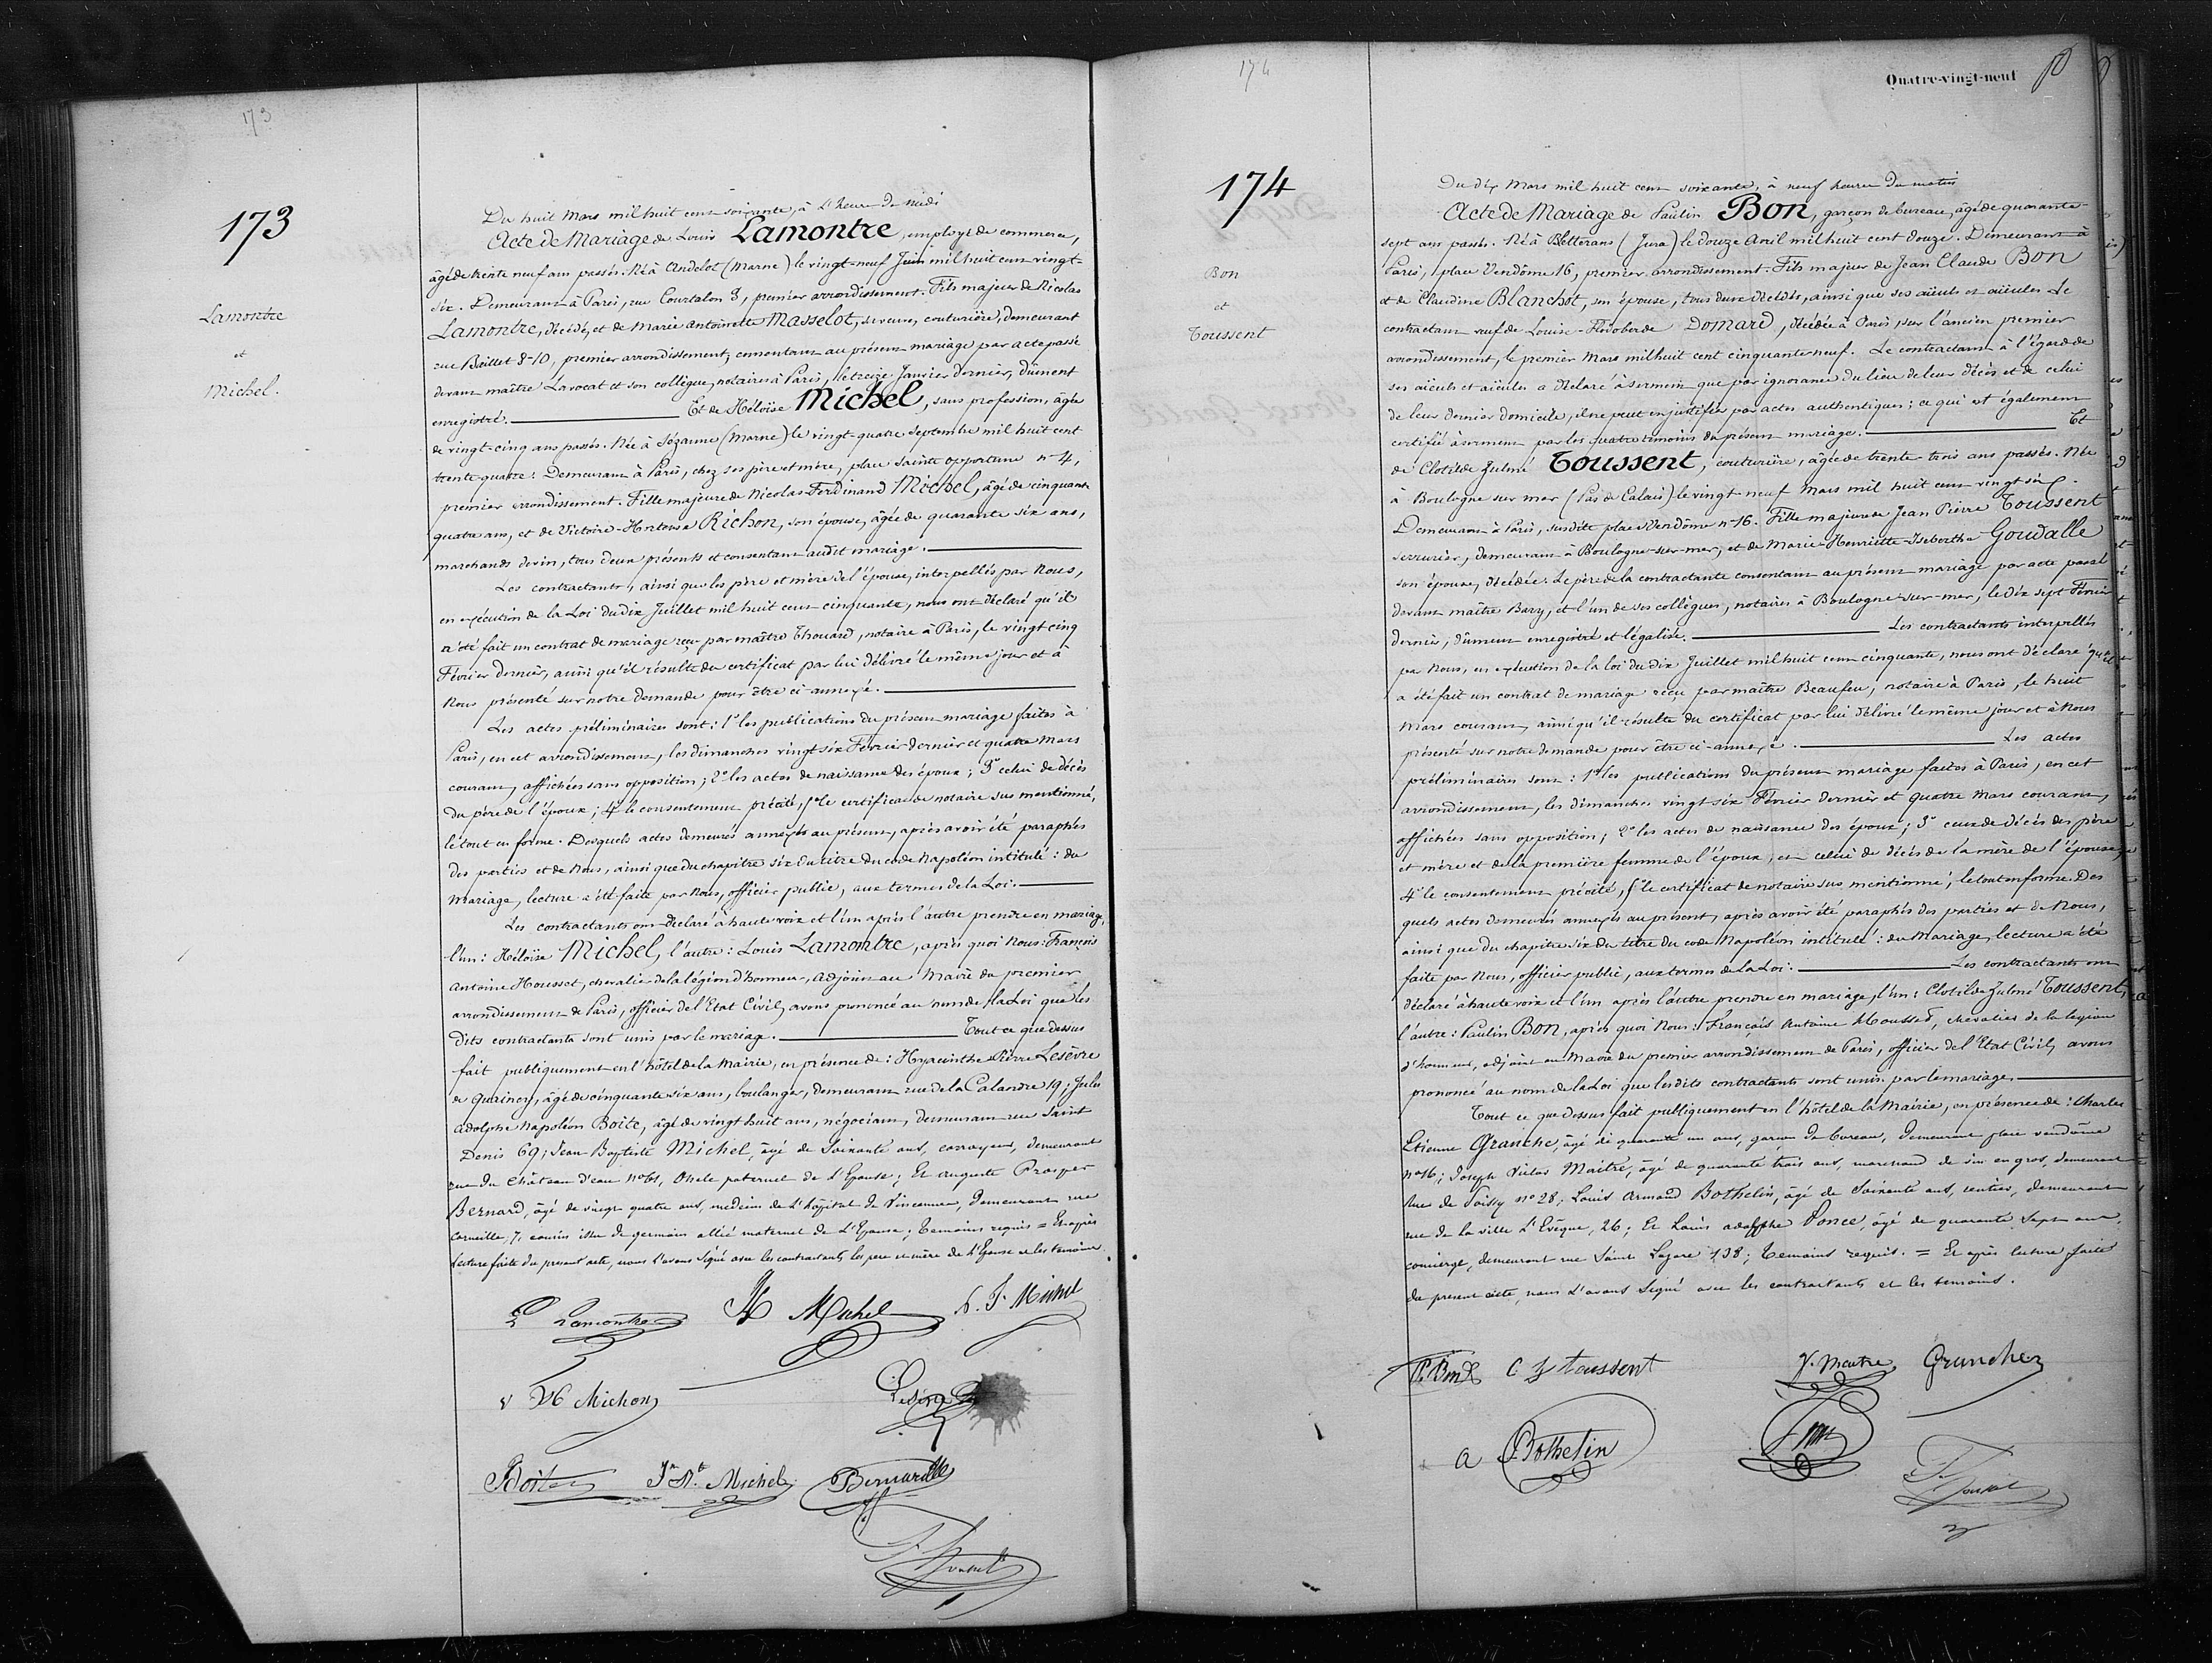 173
173
Lamontre
et
Michel.
Du huit Mars mil huit cent soixante, à l'heure de midi
Acte de Mariage de Louis Lamontre, employé de commerce,
âgé de trente neuf ans passés. Né à Andelot (Marne) le vingt-neuf Juin mil huit cent vingt-
six. Demeurant à Paris, rue Courtalon 3, premier arrondissement. Fils majeur de Nicolas
Lamontre, décédé, et de Marie Antoinette Masselot, sa veuve, couturière, demeurant
rue Baillet 8-10, premier arrondissement, consentant au présent mariage par acte passé
devant maître Lavocat et son collègue, notaires à Paris, le treize Janvier dernier, dûment
enregistré. Et de Héloïse Michel, sans profession, âgée
de vingt-cinq ans passés. Née à Sézanne (Marne) le vingt-quatre Septembre mil huit cent
trente quatre. Demeurant à Paris, chez ses père et mère, place Sainte Opportune n° 4,
premier arrondissement. Fille majeure de Nicolas Ferdinand Michel, âgé de cinquante
quatre ans, et de Victoire-Hortense Richon, son épouse, âgée de quarante six ans,
marchands de vin, tous deux présents et consentant audit mariage.
Les contractants, ainsi que les père et mère de l'épouse, interpellés par Nous,
en exécution de la Loi du dix Juillet mil huit cent cinquante, nous ont déclaré qu'il
a été fait un contrat de mariage reçu par maître Thouard, notaire à Paris, le vingt cinq
Février dernier, ainsi qu'il résulte du certificat par lui délivré le même jour et à
Nous présenté sur notre demande pour être ci-annexé.
Les actes préliminaires sont: 1° les publications du présent mariage faites à
Paris, en cet arrondissement, les dimanches vingt six Février dernier et quatre Mars
courant, affichées sans opposition; 2° les actes de naissance des époux; 3° celui de décès
du père de l'époux; 4° le consentement précité, 5° le certificat de notaire sus mentionné,
le tout en forme. Desquels actes demeurés annexés au présent, après avoir été paraphés
des parties et de Nous, ainsi que du chapitre six du titre du code Napoléon intitulé: du
Mariage, lecture a été faite par Nous, officier public, aux termes de la Loi.
Les contractants ont déclaré à haute voix et l'un après l'autre prendre en mariage,
l'un: Héloïse Michel, l'autre: Louis Lamontre, après quoi Nous: François
Antoine Housset, chevalier de la légion d'honneur, Adjoint au Maire du premier
arrondissement de Paris, officier de l'Etat Civil, avons prononcé au nom de la Loi que les
dits contractants sont unis par le mariage. Tout ce que dessus
fait publiquement en l'hôtel de la Mairie, en présence de: Hyacinthe Pierre Lesèvre
de Queriney, âgé de cinquante six ans, boulanger, demeurant rue de la Calandre 19; Jules
Adolphe Napoléon Boite, âgé de vingt huit ans, négociant, demeurant rue Saint
Denis 69; Jean Baptiste Michel, âgé de Soixante ans, corroyeur, demeurant
rue du Château d'eau n° 61, Oncle paternel de l'Epouse; Et Auguste Prosper
Bernard, âgé de vingt quatre ans, médecin de l'hôpital de Vincennes, demeurant rue
Corneille, 7, cousin issu de germain allié maternel de L'Epouse; Temoins requis = Et après
Lecture faite du présent acte, nous l'avons Signé avec les contractants les père et mère de l'Epouse et les temoins.
L Lamontre H Michel N. F. Michel
Lesèvre
Boite Jn Bte Michel Bernard
F Housset
174
Quatre-vingt-neuf
174
Bon
et
Toussent
Du dix Mars mil huit cent soixante, à neuf heures du matin
Acte de Mariage de Paulin Bon, garçon de bureau, âgé de quarante-
sept ans passés. Né à Bletterans (Jura) le douze Avril mil huit cent douze. Demeurant à
Paris, place Vendôme 16, premier arrondissement. Fils majeur de Jean Claude Bon
et de Claudine Blanchot, son épouse, tous deux décédés, ainsi que ses aïeuls et aïeules. Le
contractant veuf de Louise-Flodoberde Domard, décédée à Paris, sur l'ancien premier
arrondissement, le premier Mars mil huit cent cinquante neuf. Le contractant à l'égard de
ses aïeuls et aïeules a déclaré à serment que par ignorance du lieu de leur décès et de celui
de leur dernier domicile, il ne peut en justifier par actes authentiques; ce qui est également
certifié à serment par les quatre témoins du présent mariage. Et
de Clotilde Zulmé Toussent, couturière, âgée de trente-trois ans passés. Née
à Boulogne sur mer (Pas de Calais) le vingt-neuf Mars mil huit cent vingt six.
Demeurant à Paris, susdite place Vendôme n° 16. Fille majeure de Jean Pierre Toussent
serrurier, demeurant à Boulogne-sur-mer, et de Marie-Henriette-Iseberthe Goudalle
son épouse, décédée. Le père de la contractante consentant au présent mariage par acte passé
devant maître Bary, et l'un de ses collègues, notaires à Boulogne-sur-mer, le dix sept Février
dernier, dûment enregistré et légalisé. Les contractants interpellés
par Nous, en exécution de la loi du dix Juillet mil huit cent cinquante, nous ont déclaré qu'il
a été fait un contrat de mariage reçu par maître Beaufeu, notaire à Paris, le huit
Mars courant, ainsi qu'il résulte du certificat par lui délivré le même jour et à Nous
présenté sur notre demande pour être ci-annexé. Les actes
préliminaires sont: 1° les publications du présent mariage faites à Paris, en cet
arrondissement, les dimanches vingt six Février dernier et quatre Mars courant,
affichées sans opposition; 2° les actes de naissance des époux; 3° ceux de décès des père
et mère et de la première femme de l'époux, et celui de décès de la mère de l'épouse,
4° le consentement précité, 5° le certificat de notaire sus mentionné; le tout en forme. Des
quels actes demeurés annexés au présent, après avoir été paraphés des parties et de Nous,
ainsi que du chapitre six du titre du code Napoléon intitulé: du Mariage, lecture a été
faite par Nous, officier public, aux termes de la Loi. Les contractants ont
déclaré à haute voix et l'un après l'autre prendre en mariage, l'un: Clotilde Zulmé Toussent,
l'autre: Paulin Bon, après quoi Nous: François Antoine Housset, chevalier de la légion
d'honneur, adjoint au Maire du premier arrondissement de Paris, officier de l'Etat Civil, avons
prononcé au nom de la Loi que lesdits contractants sont unis par le mariage.
Tout ce que dessus fait publiquement en l'hôtel de la Mairie, en présence de: Charles
Etienne Granche, âgé de quarante un ans, garçon de bureau, demeurant place vendôme
n° 16; Joseph Victor Maitre, âgé de quarante trois ans, marchand de vin en gros, demeurant
Rue de Poissy n° 28; Louis Armand Bothelin, âgé de Soixante ans, rentier, demeurant
rue de la ville L'Evêque, 26; Et Louis adolphe Ponce, âgé de quarante sept ans,
concierge, demeurant rue Saint Lazare 138; temoins requis. = Et après lecture faite
du present acte, nous l'avons Signé avec les contractants et les temoins.
P. Bon C Z toussent V. Maitre Granchez
A Bothelin
F Housset